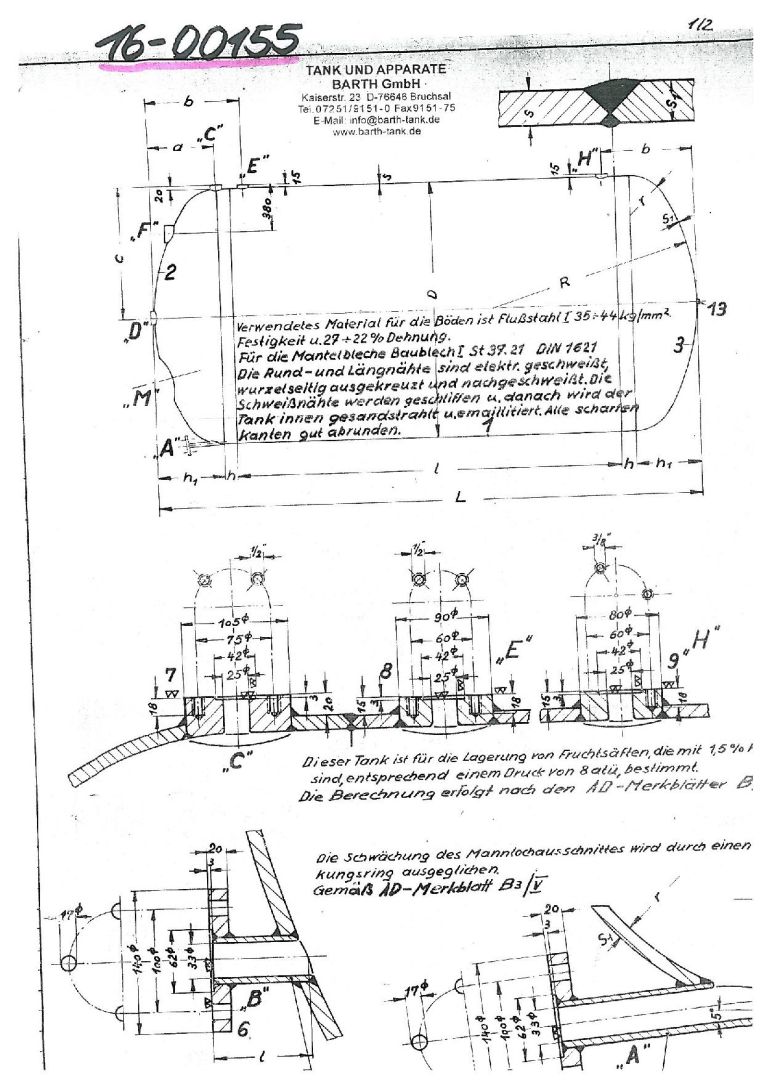 16-00155
1/2
TANK UND APPARATE
BARTH GmbH
Kaiserstr. 23 D-76646 Bruchsal
Tel. 07251/9151-0 Fax 9151-75
E-Mail: info@barth-tank.de
www.barth-tank.de
b
"C"
a
"E"
15
s
15
"H"
b
s
s₁
20
380
"F"
c
2
r
s₁
R
D
"D"
13
3
Verwendetes Material für die Böden ist Flußstahl I 35÷44 kg/mm²
Festigkeit u. 27÷22 % Dehnung.
Für die Mantelbleche Baublech I St 37.21 DIN 1621
Die Rund- und Längnähte sind elektr. geschweißt,
wurzelseitig ausgekreuzt und nachgeschweißt. Die
Schweißnähte werden geschliffen u. danach wird der
Tank innen gesandstrahlt u. emaillitiert. Alle scharfen
Kanten gut abrunden.
"M"
"A"
1
h₁
h
l
h
h₁
L
1/2"
1/2"
3/8"
105φ
75φ
42φ
25φ
90φ
60φ
42φ
25φ
80φ
60φ
42φ
25φ
7
8
"E"
9
"H"
18
3
20
15
3
18
15
3
18
"C"
Dieser Tank ist für die Lagerung von Fruchtsäften, die mit 1,5 %
sind, entsprechend einem Druck von 8 atü, bestimmt.
Die Berechnung erfolgt nach den AD-Merkblätter B
Die Schwächung des Mannlochausschnittes wird durch einen
kungsring ausgeglichen.
Gemäß AD-Merkblatt B3/V
20
3
17φ
140φ
100φ
62φ
33φ
"B"
6
l
20
3
s₁
r
17φ
140φ
100φ
62φ
33φ
5°
"A"